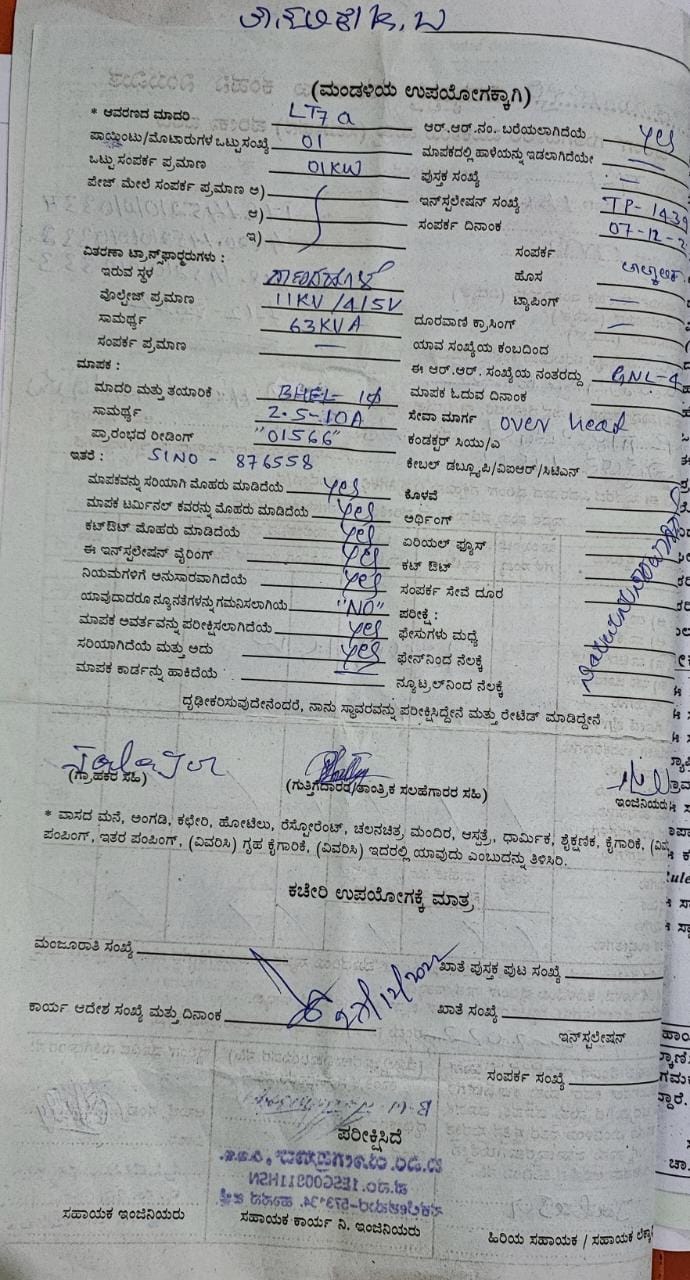 (ಮಂಡಳಿಯ ಉಪಯೋಗಕ್ಕಾಗಿ)
* ಆವರಣದ ಮಾದರಿ LT7a
ಪಾಯಿಂಟು/ಮೊಟಾರುಗಳ ಒಟ್ಟುಸಂಖ್ಯೆ 01
ಒಟ್ಟು ಸಂಪರ್ಕ ಪ್ರಮಾಣ 01KW
ಪೇಜ್ ಮೇಲೆ ಸಂಪರ್ಕ ಪ್ರಮಾಣ ಅ)
ಆ)
ಇ)
ವಿತರಣಾ ಟ್ರಾನ್ಸ್‌ಫಾರ್‍ಮರುಗಳು :
ಇರುವ ಸ್ಥಳ
ವೊಲ್ಟೇಜ್ ಪ್ರಮಾಣ 11KV/415V
ಸಾಮರ್ಥ್ಯ 63KVA
ಸಂಪರ್ಕ ಪ್ರಮಾಣ —
ಮಾಪಕ :
ಮಾದರಿ ಮತ್ತು ತಯಾರಿಕೆ BHEL- 1ϕ
ಸಾಮರ್ಥ್ಯ 2.5-10A
ಪ್ರಾರಂಭದ ರೀಡಿಂಗ್ "01566"
ಇತರೆ : SINO - 876558
ಮಾಪಕವನ್ನು ಸರಿಯಾಗಿ ಮೊಹರು ಮಾಡಿದೆಯೆ yes
ಮಾಪಕ ಟರ್ಮಿನಲ್ ಕವರನ್ನು ಮೊಹರು ಮಾಡಿದೆಯೆ yes
ಕಟ್‌ಔಟ್ ಮೊಹರು ಮಾಡಿದೆಯೆ yes
ಈ ಇನ್‌ಸ್ಟಲೇಷನ್ ವೈರಿಂಗ್ yes
ನಿಯಮಗಳಿಗೆ ಅನುಸಾರವಾಗಿದೆಯೆ yes
ಯಾವುದಾದರೂ ನ್ಯೂನತೆಗಳನ್ನು ಗಮನಿಸಲಾಗಿಯೆ "NO"
ಮಾಪಕ ಅವರ್ತವನ್ನು ಪರೀಕ್ಷಿಸಲಾಗಿದೆಯೆ yes
ಸರಿಯಾಗಿದೆಯೆ ಮತ್ತು ಅದು yes
ಮಾಪಕ ಕಾರ್ಡನ್ನು ಹಾಕಿದೆಯೆ —
ಆರ್.ಆರ್.ನಂ. ಬರೆಯಲಾಗಿದೆಯೆ yes
ಮಾಪಕದಲ್ಲಿ ಹಾಳೆಯನ್ನು ಇಡಲಾಗಿದೆಯೇ —
ಪುಸ್ತಕ ಸಂಖ್ಯೆ —
ಇನ್‌ಸ್ಟಲೇಷನ್ ಸಂಖ್ಯೆ TP-1439
ಸಂಪರ್ಕ ದಿನಾಂಕ 07-12-2
ಸಂಪರ್ಕ
ಹೊಸ
ಟ್ಯಾಪಿಂಗ್ —
ದೂರವಾಣಿ ಕ್ರಾಸಿಂಗ್ —
ಯಾವ ಸಂಖ್ಯೆಯ ಕಂಬದಿಂದ
ಈ ಆರ್.ಆರ್. ಸಂಖ್ಯೆಯ ನಂತರದ್ದು GNL-4
ಮಾಪಕ ಓದುವ ದಿನಾಂಕ
ಸೇವಾ ಮಾರ್ಗ over head
ಕಂಡಕ್ಟರ್ ಸಿಯು/ಎ
ಕೇಬಲ್ ಡಬ್ಲ್ಯೂಪಿ/ವಿಐಆರ್/ಸಿಟಿಎನ್
ಕೊಳವೆ
ಅರ್ಥಿಂಗ್
ಏರಿಯಲ್ ಫ್ಯೂಸ್
ಕಟ್ ಔಟ್
ಸಂಪರ್ಕ ಸೇವೆ ದೂರ
ಪರೀಕ್ಷೆ :
ಫೇಸುಗಳು ಮಧ್ಯೆ
ಫೇಸ್‌ನಿಂದ ನೆಲಕ್ಕೆ
ನ್ಯೂಟ್ರಲ್‌ನಿಂದ ನೆಲಕ್ಕೆ
ದೃಢೀಕರಿಸುವುದೇನೆಂದರೆ, ನಾನು ಸ್ಥಾವರವನ್ನು ಪರೀಕ್ಷಿಸಿದ್ದೇನೆ ಮತ್ತು ರೇಟಿಡ್ ಮಾಡಿದ್ದೇನೆ
(ಗ್ರಾಹಕರ ಸಹಿ) (ಗುತ್ತಿಗೆದಾರರ/ತಾಂತ್ರಿಕ ಸಲಹೆಗಾರರ ಸಹಿ) ಇಂಜಿನಿಯರು
* ವಾಸದ ಮನೆ, ಅಂಗಡಿ, ಕಛೇರಿ, ಹೋಟೆಲು, ರೆಸ್ಟೋರೆಂಟ್, ಚಲನಚಿತ್ರ ಮಂದಿರ, ಆಸ್ಪತ್ರೆ, ಧಾರ್ಮಿಕ, ಶೈಕ್ಷಣಿಕ, ಕೈಗಾರಿಕೆ,
ಪಂಪಿಂಗ್, ಇತರ ಪಂಪಿಂಗ್, (ವಿವರಿಸಿ) ಗೃಹ ಕೈಗಾರಿಕೆ, (ವಿವರಿಸಿ) ಇದರಲ್ಲಿ ಯಾವುದು ಎಂಬುದನ್ನು ತಿಳಿಸಿರಿ.
ಕಚೇರಿ ಉಪಯೋಗಕ್ಕೆ ಮಾತ್ರ
ಮಂಜೂರಾತಿ ಸಂಖ್ಯೆ ಖಾತೆ ಪುಸ್ತಕ ಪುಟ ಸಂಖ್ಯೆ
ಕಾರ್ಯ ಆದೇಶ ಸಂಖ್ಯೆ ಮತ್ತು ದಿನಾಂಕ ಖಾತೆ ಸಂಖ್ಯೆ
ಇನ್‌ಸ್ಟಲೇಷನ್
ಸಂಪರ್ಕ ಸಂಖ್ಯೆ
ಪರೀಕ್ಷಿಸಿದೆ
ಸಹಾಯಕ ಇಂಜಿನಿಯರು ಸಹಾಯಕ ಕಾರ್ಯ ನಿ. ಇಂಜಿನಿಯರು ಹಿರಿಯ ಸಹಾಯಕ / ಸಹಾಯಕ